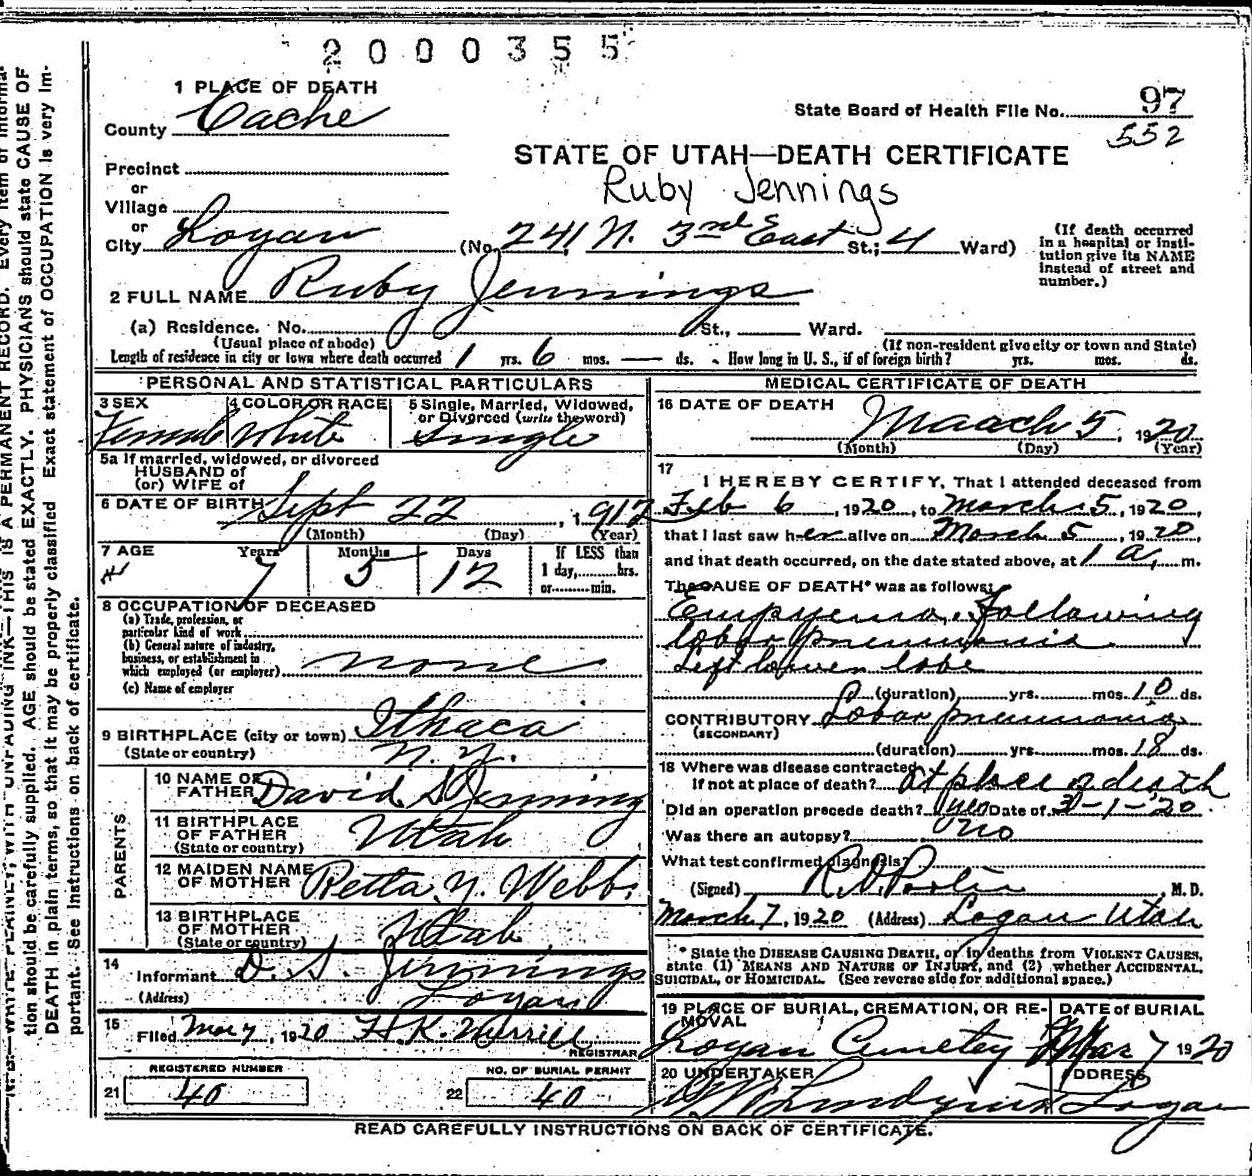 2000355
1 PLACE OF DEATH
County Cache
State Board of Health File No. 97
552
STATE OF UTAH—DEATH CERTIFICATE
Ruby Jennings
Precinct
or
Village
or
City Logan (No. 241 N. 3rd East St.; 4 Ward)
(If death occurred
in a hospital or insti-
tution give its NAME
instead of street and
number.)
2 FULL NAME Ruby Jennings
(a) Residence. No. St., Ward.
(Usual place of abode) (If non-resident give city or town and State)
Length of residence in city or town where death occurred 1 yrs. 6 mos. — ds. How long in U. S., if of foreign birth? yrs. mos. ds.
PERSONAL AND STATISTICAL PARTICULARS
3 SEX 4 COLOR OR RACE 5 Single, Married, Widowed,
or Divorced (write the word)
Female White Single
5a If married, widowed, or divorced
HUSBAND of
(or) WIFE of
6 DATE OF BIRTH Sept 22, 1912
(Month) (Day) (Year)
7 AGE Years Months Days If LESS than
7 5 12 1 day,......hrs.
or......min.
8 OCCUPATION OF DECEASED
(a) Trade, profession, or
particular kind of work
(b) General nature of industry,
business, or establishment in
which employed (or employer) none
(c) Name of employer
9 BIRTHPLACE (city or town) Ithaca
(State or country) N. Y.
PARENTS
10 NAME OF
FATHER David S Jennings
11 BIRTHPLACE
OF FATHER
(State or country) Utah
12 MAIDEN NAME
OF MOTHER Retta Y. Webb
13 BIRTHPLACE
OF MOTHER
(State or country) Utah
14
Informant D. S. Jennings
(Address) Logan
15
Filed Mar 7, 1920 H. K. Merrill
REGISTRAR
REGISTERED NUMBER
21 40
NO. OF BURIAL PERMIT
22 40
MEDICAL CERTIFICATE OF DEATH
16 DATE OF DEATH March 5, 1920
(Month) (Day) (Year)
17
I HEREBY CERTIFY, That I attended deceased from
Feb 6, 1920, to March 5, 1920,
that I last saw her alive on March 5, 1920,
and that death occurred, on the date stated above, at 1 a. m.
The CAUSE OF DEATH* was as follows:
Empyema, Following
lobar pneumonia
Left lower lobe
(duration) yrs. mos. 10 ds.
CONTRIBUTORY Lobar pneumonia
(SECONDARY)
(duration) yrs. mos. 18 ds.
18 Where was disease contracted
If not at place of death? At place of death
Did an operation precede death? yes Date of 3-1-'20
Was there an autopsy? no
What test confirmed diagnosis?
(Signed) R. O. Porter, M. D.
March 7, 1920 (Address) Logan Utah
* State the DISEASE CAUSING DEATH, or in deaths from VIOLENT CAUSES,
state (1) MEANS AND NATURE OF INJURY, and (2) whether ACCIDENTAL,
SUICIDAL, or HOMICIDAL. (See reverse side for additional space.)
19 PLACE OF BURIAL, CREMATION, OR RE-
MOVAL
DATE of BURIAL
Logan Cemetey Mar 7 1920
20 UNDERTAKER ADDRESS
Logan
READ CAREFULLY INSTRUCTIONS ON BACK OF CERTIFICATE.
THIS IS A PERMANENT RECORD. Every item of informa-
tion should be carefully supplied. AGE should be stated EXACTLY. PHYSICIANS should state CAUSE OF
DEATH in plain terms, so that it may be properly classified Exact statement of OCCUPATION is very im-
portant. See Instructions on back of certificate.